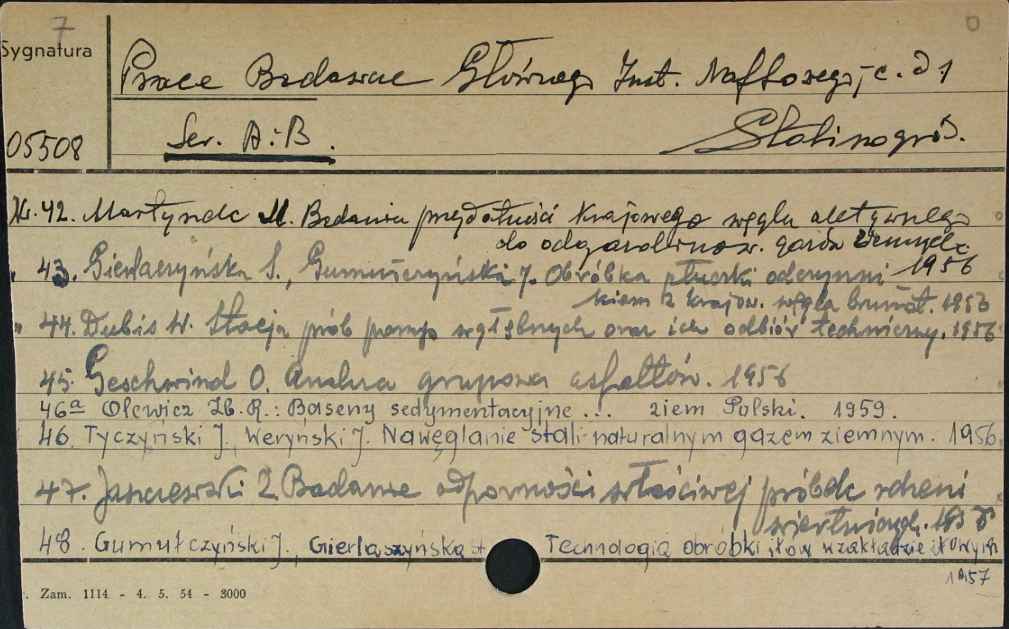 7
Sygnatura
Prace Badawcze Głównego Inst. Naftowego, c. d 1
05508 Ser. A i B. Stalinogród.
Nr. 42. Martynek M. Badania przydatności krajowego węgla aktywnego
do odgazolinow. gazów ziemnych 1956
" 43. Gierłaszyńska S., Gumułczyński J. Obróbka płuczki odczynni
kiem z krajow. węgla brunat. 1956
" 44. Dubis W. Stacja prób pomp wgłębnych oraz ich odbiór techniczny. 1956
45. Geschwind O. Analiza grupowa asfaltów. 1956
46a Olewicz Zb. R.: Baseny sedymentacyjne ... ziem Polski. 1959.
46. Tyczyński J., Weryński J. Nawęglanie stali naturalnym gazem ziemnym. 1956
47. Z. Badanie odporności właściwej próbek rdzeni
wiertniczych.
48. Gumułczyński J., Gierłaszyńska Technologia obróbki iłów w zakładzie iłowym
1957
Zam. 1114 - 4. 5. 54 - 3000